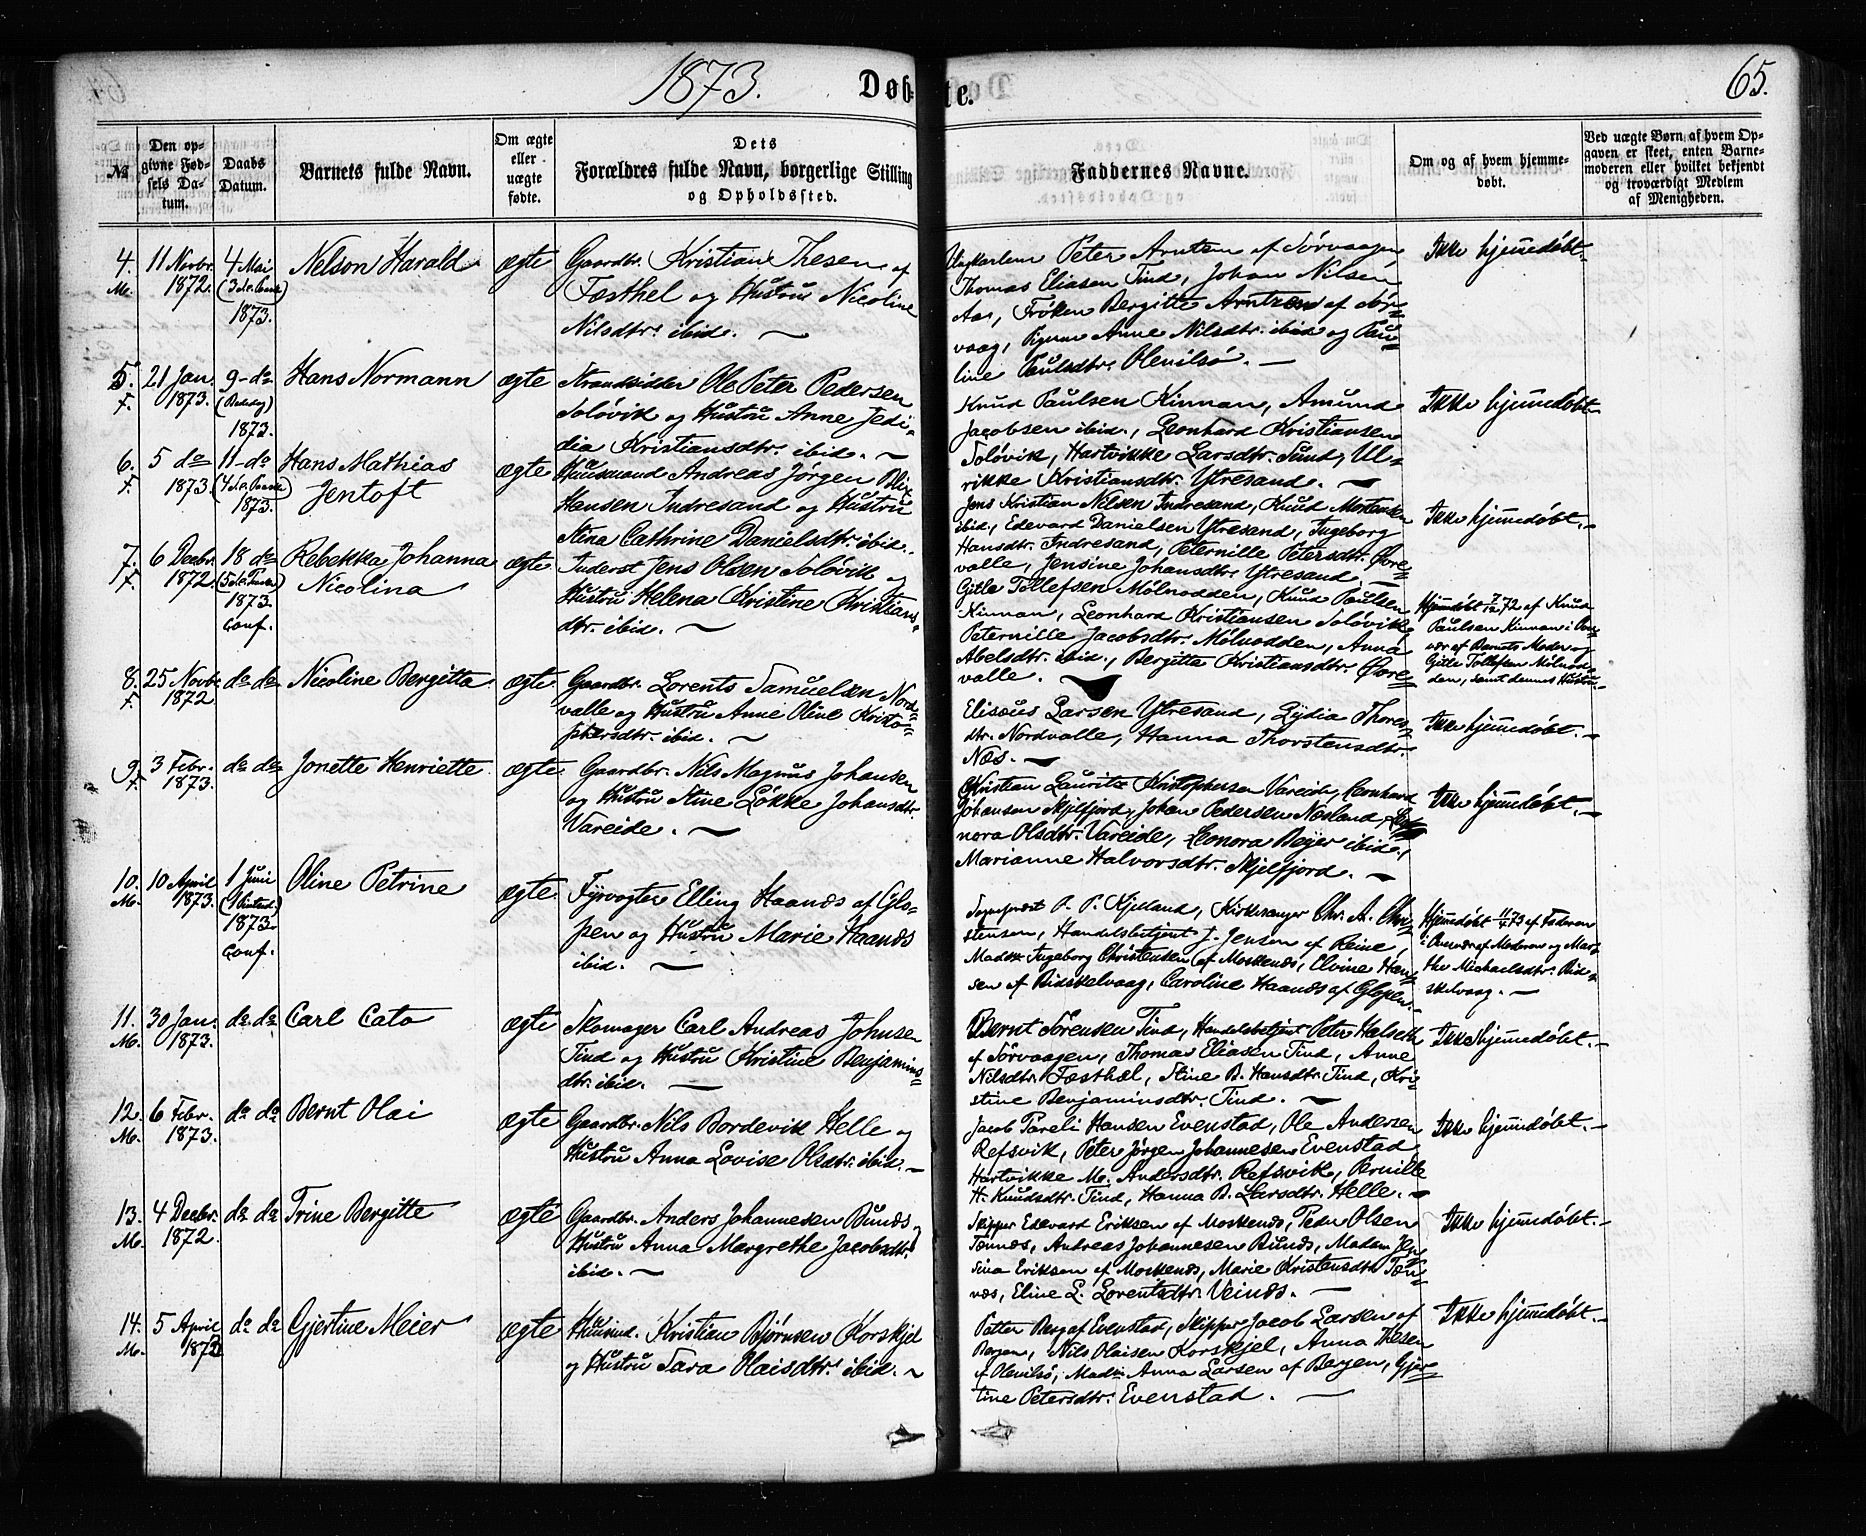 1873.
Døbte.
65.
№
Den opgivne Fødsels Datum.
Daabs Datum.
Barnets fulde Navn.
Om ægte eller uægte fødte.
Dets Forældres fulde Navn, borgerlige Stilling og Opholdssted.
Faddernes Navne.
Om og af hvem hjemmedøbt.
Ved uægte Børn af hvem Opgaven er skeet, enten Barnemoderen eller hvilket bekjendt og troværdigt Medlem af Menigheden.
4. M. 11 Novbr. 1872. 4 Mai 1873. Nelson Harald ægte
Gaardbr. Kristian Thesen af
Festhel og Hustru Nicoline
Nilsdtr. ibid.
Ungkarlene Peter Arntzen af Sørvaagen
Thomas Eliasen Tind, Johan Nilsen
Aas, Frøken Bergitte Arntzen af Sør=
vaag, Pigerne Anne Nilsdtr. ibid og Pau=
line Paulsdtr. Olenilsø.
Ikke hjemdøbt.
5. F. 21 Jan. 1873. 9 do (Bededag) 1873. Hans Normann ægte
Strandsidder Ole Peter Pedersen
Soløvik og Hustru Anne Jedi=
dia Kristiansdtr. ibid.
Knud Paulsen Kinnan, Amund
Jacobsen ibid., Leonhard Kristiansen
Soløvik, Hartvikke Larsdtr. Sund, Ul=
rikke Kristiansdtr. Ytresand.
Ikke hjemdøbt
6. F. 5 do 1873. 11 do 1873. Hans Mathias
Jentoft ægte
Huusmand Andreas Jørgen Blix
Hansen Indresand og Hustru
Stina Cathrine Danielsdtr. ibid.
Jens Kristian Nilsen Indresand, Knud Mortensen
ibid., Edevard Danielsen Ytresand, Ingeborg
Hansdtr. Indresand, Peternille Petersdtr. Øvre=
valle, Jensine Johansdtr. Ytresand.
Ikke hjemdøbt.
7. F. 6 Decbr. 1872. 18 do 1873. Conf. Rebekka Johanna
Nicolina ægte
Inderst Jens Olsen Soløvik og
Hustru Helena Kristine Kristians=
dtr. ibid.
Gitle Tollefsen Mølnodden, Knud Paulsen
Kinnan, Leonhard Kristiansen Soløvik,
Peternille Jacobsdtr. Mølnodden, Anna
Abelsdtr. ibid., Bergitte Kristiansdtr. Øvre=
valle.
Hjemdøbt 7/12 72 af Knud
Paulsen Kinnan i Over=
vær af Barnets Moder og
Gitle Tollefsen Mølnod=
den, samt dennes Hustru.
8. F. 25 Novbr. 1872 do do Nicoline Bergitta ægte
Gaardbr. Lorents Samuelsen Nord=
valle og Hustru Anne Oline Kristo=
fersdtr. ibid.
Elisæus Larsen Ytresand, Lydia Thores=
dtr. Nordvalle, Hanna Thorstensdtr.
Næs.
Ikke hjemdøbt.
9. F. 3 Febr. 1873. do do Jonette Henriette ægte
Gaardbr. Nils Magnus Johansen
og Hustru Stine Løkke Johansdtr.
Vareide.
Kristian Lauritz Kristophersen Vareide, Leonhard
Johansen Skjelfjord, Johan Pedersen Næsland, Leo=
nora Olsdtr. Vareide, Leonora Beyer ibid.,
Marianne Halvorsdtr. Skjelfjord.
Ikke hjemdøbt.
10. M. 10 April 1873. 1 Juni 1873. Conf. Oline Petrine ægte
Fyrvogter Elling Haands af Glo=
pen og Hustru Marie Haands
ibid.
Sogneprest P. P. Kjelland, Kirkesanger Chr. A. Chri=
stensen, Handelsbetjent J. Jensen af Reine
Madm. Ingeborg Christensen af Moskenæs, Elvine Han=
sen af Bidskelvaag, Caroline Haands af Glopen.
Hjemdøbt 11/4 73 af Faderen
i Overvær af Moderen og Mar=
the Michaelsdtr. Bid=
skelvaag.
11. M. 30 Jan. 1873. do do Carl Cato ægte
Skomager Carl Andreas Johnsen
Tind og Hustru Kristine Benjamins=
dtr. ibid.
Bernt Sørensen Tind, Handelsbetjent Peter Halseth
af Sørvaagen, Thomas Eliasen Tind, Anne
Nilsdtr. Festhæl, Stine B. Hansdtr. Tind, Kri=
stine Benjaminsdtr. Tind.
Ikke hjemdøbt.
12. M. 6 Febr. 1873. do do Bernt Olai ægte
Gaardbr. Nils Bordevik Helle og
Hustru Anna Lovise Olsdtr. ibid.
Jacob Pareli Hansen Evenstad, Ole Andersen
Refsvik, Peter Jørgen Johannesen Evenstad,
Hartvikke M. Andersdtr. Refsvik, Pernille
H. Knudsdtr. Tind, Hanna B. Larsdtr. Helle.
Ikke hjemdøbt.
13. M. 4 Decbr. 1872. do do Trine Bergitte ægte
Gaardbr. Anders Johannesen Bunds
Hustru Anna Margrethe Jacobsdtr.
ibid.
Skipper Edevard Eriksen af Moskenæs, Peder Olsen
Tennæs, Andreas Johannesen Bunds, Madam Jen=
sina Eriksen af Moskenæs, Marie Kristensdtr. Ten=
næs, Eline L. Lorentsdtr. Veinæs.
Ikke hjemdøbt.
14. M. 5 April do do Gjertine Meier ægte
Huusmd. Kristian Bjørnsen Korskjel
og Hustru Sara Olaisdtr. ibid.
Petter Berg af Evenstad, Skipper Jacob Larsen af
Bergen, Nils Olaisen Korskjel, Anna Thesen
af Olenilsø, Madm. Anna Larsen af Bergen, Gjer=
tine Petersdtr. Evenstad.
Ikke hjemdøbt.